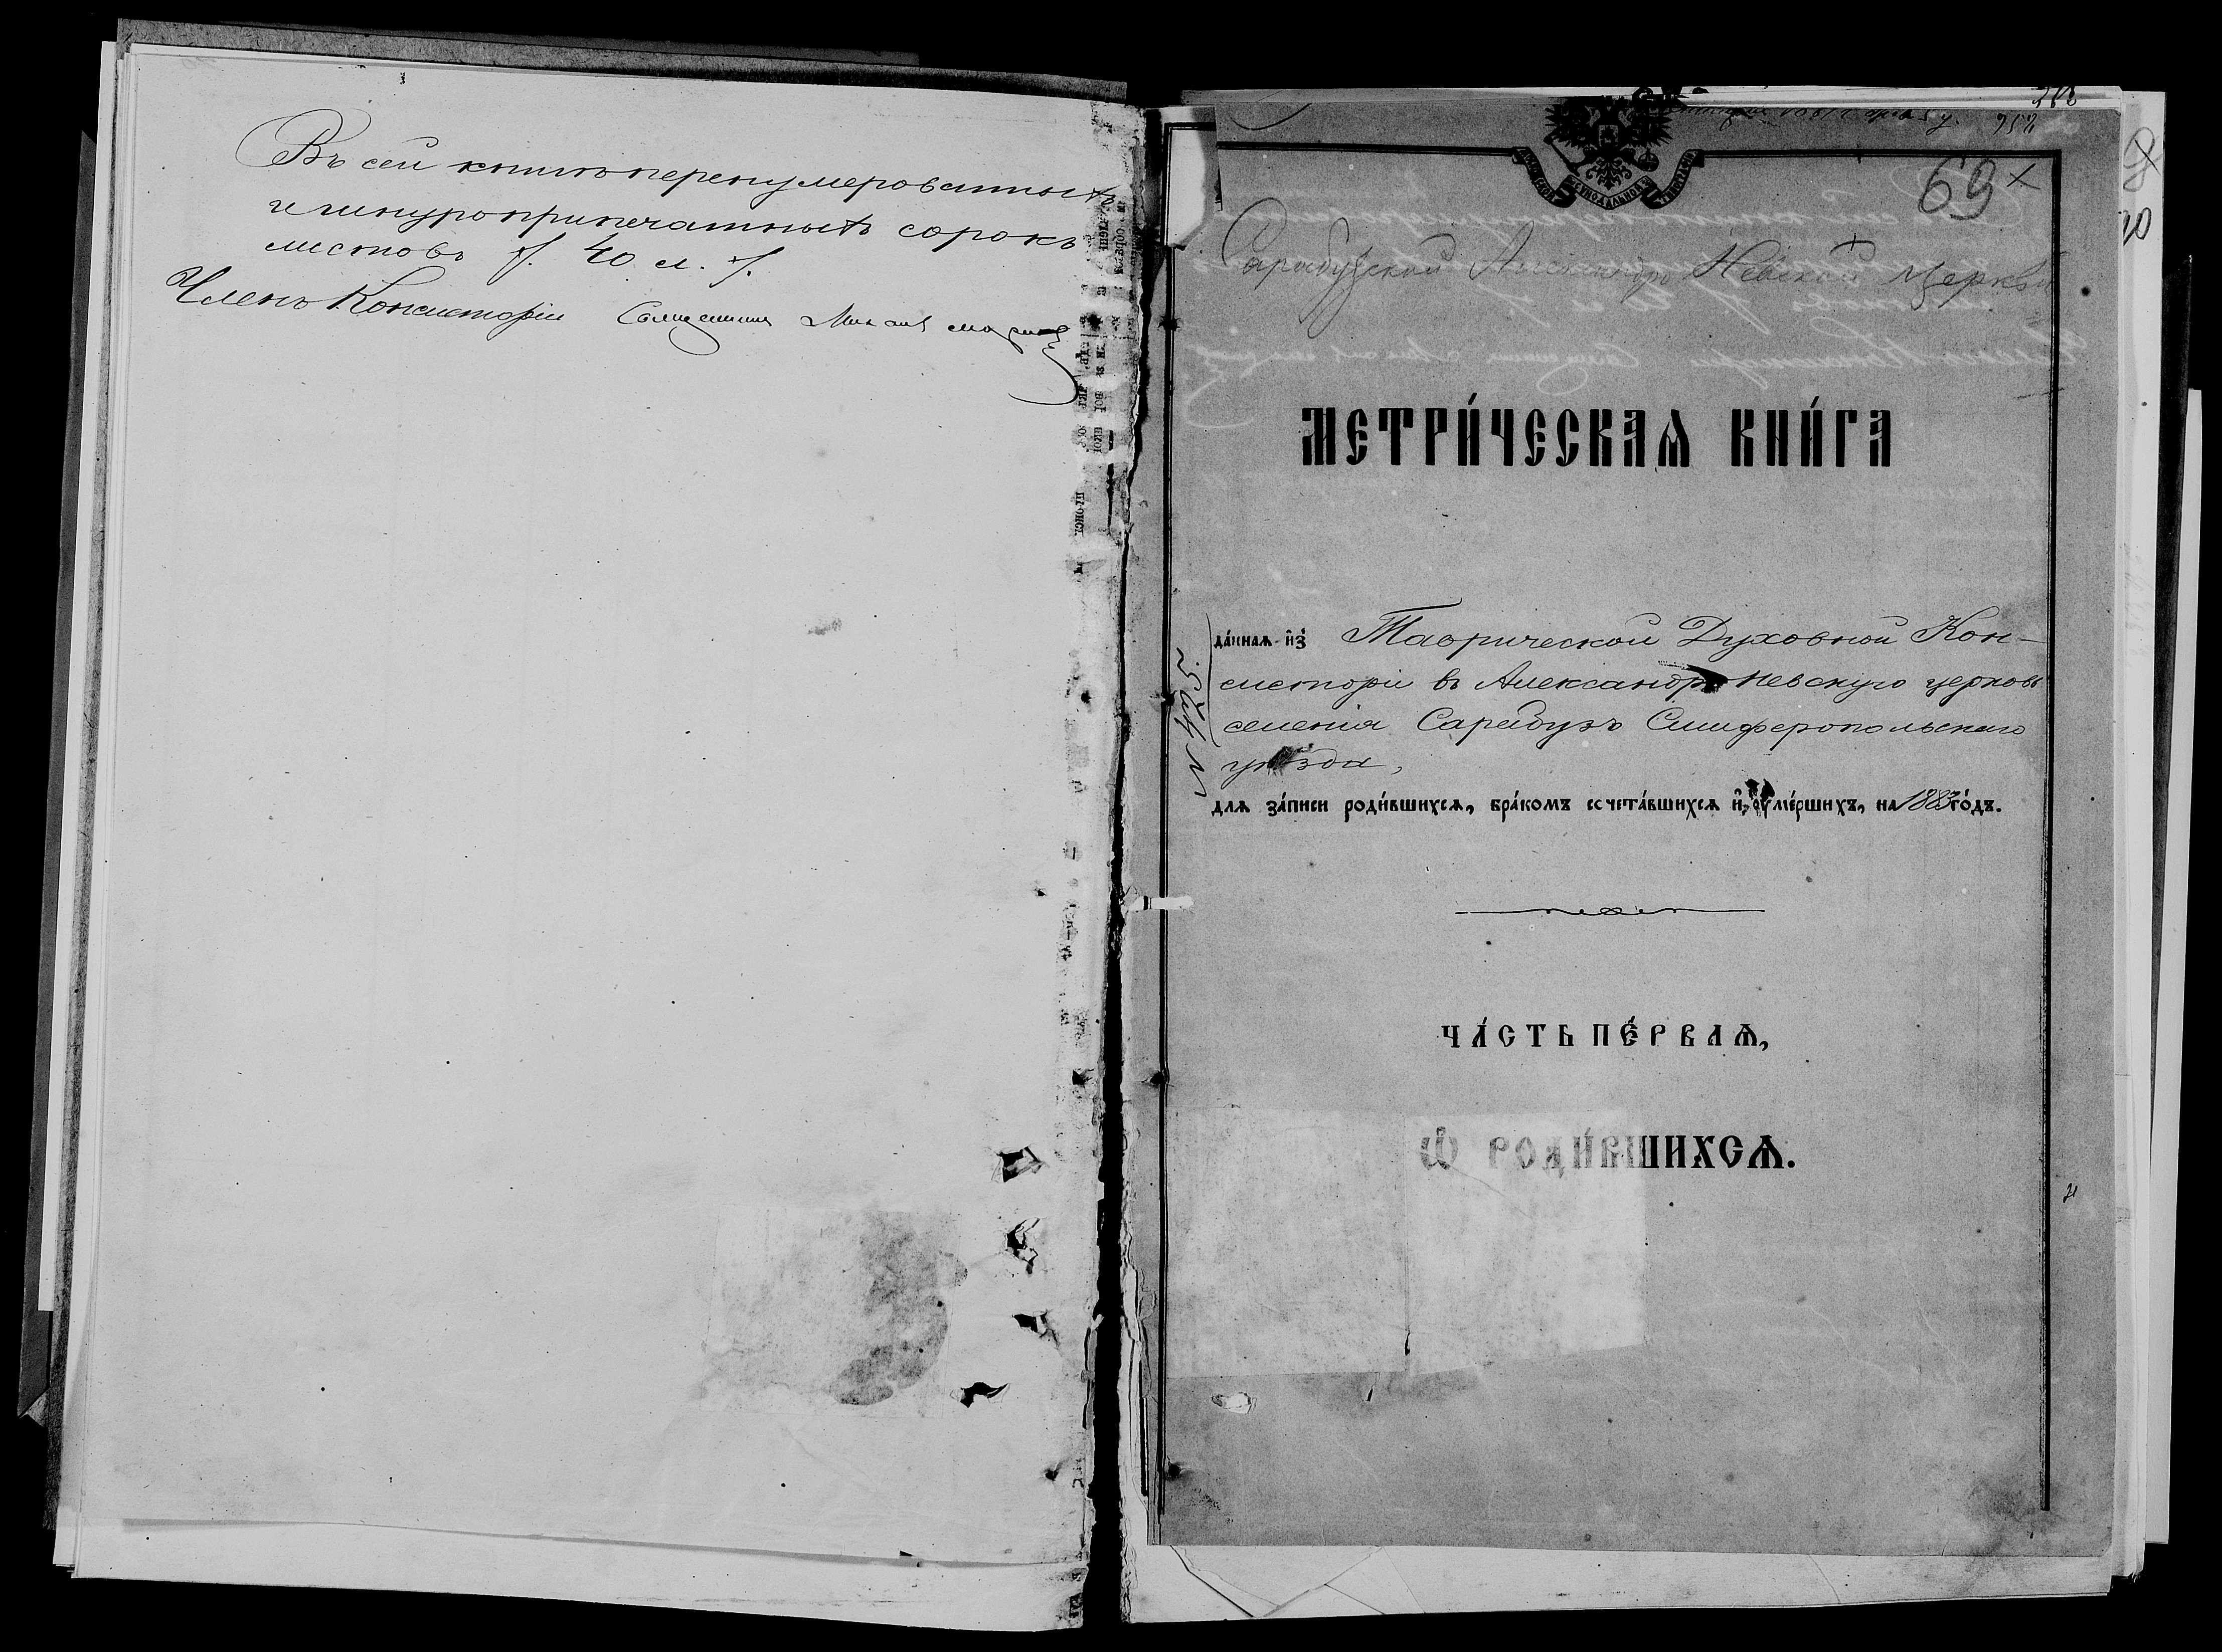 Въ сей книгѣ перенумерованныхъ
и шнуроприпечатныхъ сорокъ
листовъ ./. 40 л. ./.
Членъ Консисторіи Священникъ Михаилъ
69 ×
Сарабузской Александро Невской церкви
МЕТРИ́ЧЕСКАѦ КНИ́ГА
да́ннаѧ и҆з̾ Таврической Духовной Кон-
систоріи въ Александро Невскую церковь
селенія Сарабузъ Симферопольскаго
уѣзда,
длѧ за́писи роди́вшихсѧ, бра́комъ сочета́вшихсѧ и҆ ᲂу҆ме́ршихъ, на 1883 го́дъ.
ЧА́СТЬ ПЕ́РВАѦ,
Ѽ РОДИ́ВШИХСѦ.